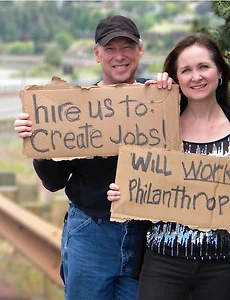 hire us to:
Create Jobs!
Will Work
Philanthrop